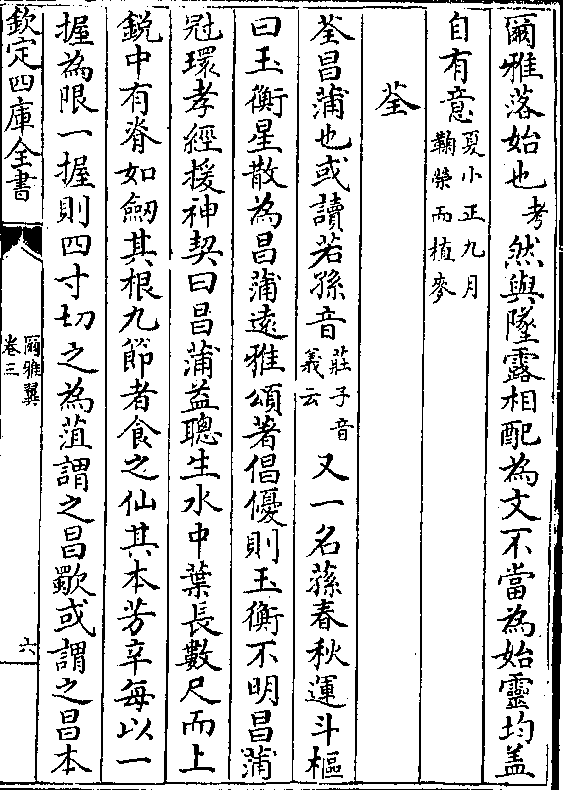 爾雅落始也考然與墜露相配為文不當為始靈均盖
自有意夏小正九月
鞠榮而植麥
荃
荃昌蒲也或讀若孫音莊子音
義云又一名蓀春秋運斗樞
曰玉衡星散為昌蒲逺雅頌著倡優則玉衡不明昌蒲
冠環孝經援神契曰昌蒲益聰生水中葉長數尺而上
鋭中有脊如劒其根九節者食之仙其本芳辛每以一
握為限一握則四寸切之為菹謂之昌歜或謂之昌本
欽定四庫全書
爾雅翼
卷三
六